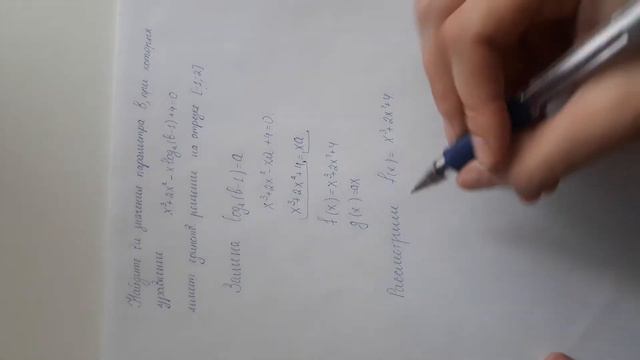 Найдите все значения параметра b, при которых
уравнение x³+2x²-x log₂(b-1)+4=0
имеет единств решение на отрезке [-1;2]
Замена log₂(b-1)=a
x³+2x²-xa+4=0
x³+2x²+4=xa
f(x)=x³+2x²+4
g(x)=ax
Рассмотрим f(x)=x³+2x²+4